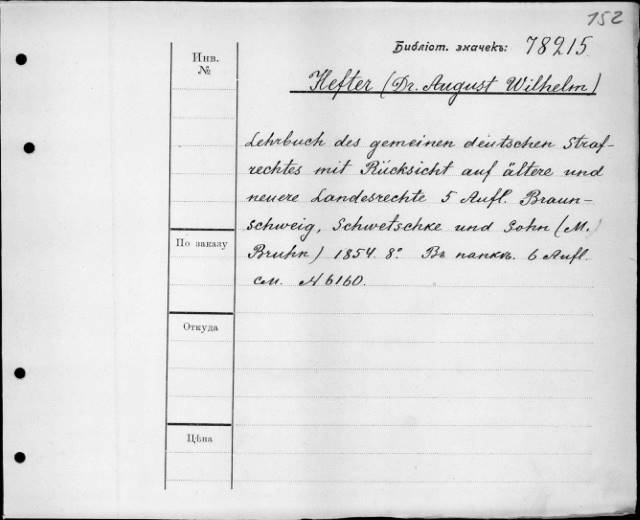 152
Библіот. значекъ: 78215.
Инв.
№
Hefter (Dr. August Wilhelm)
Lehrbuch des gemeinen deutschen Straf-
rechtes mit Rücksicht auf ältere und
neuere Landesrechte 5 Aufl. Braun-
schweig, Schwetschke und Sohn (M.
Bruhn) 1854. 8°. Въ папкѣ. 6 Aufl.
см. N 6160.
По заказу
Откуда
Цѣна